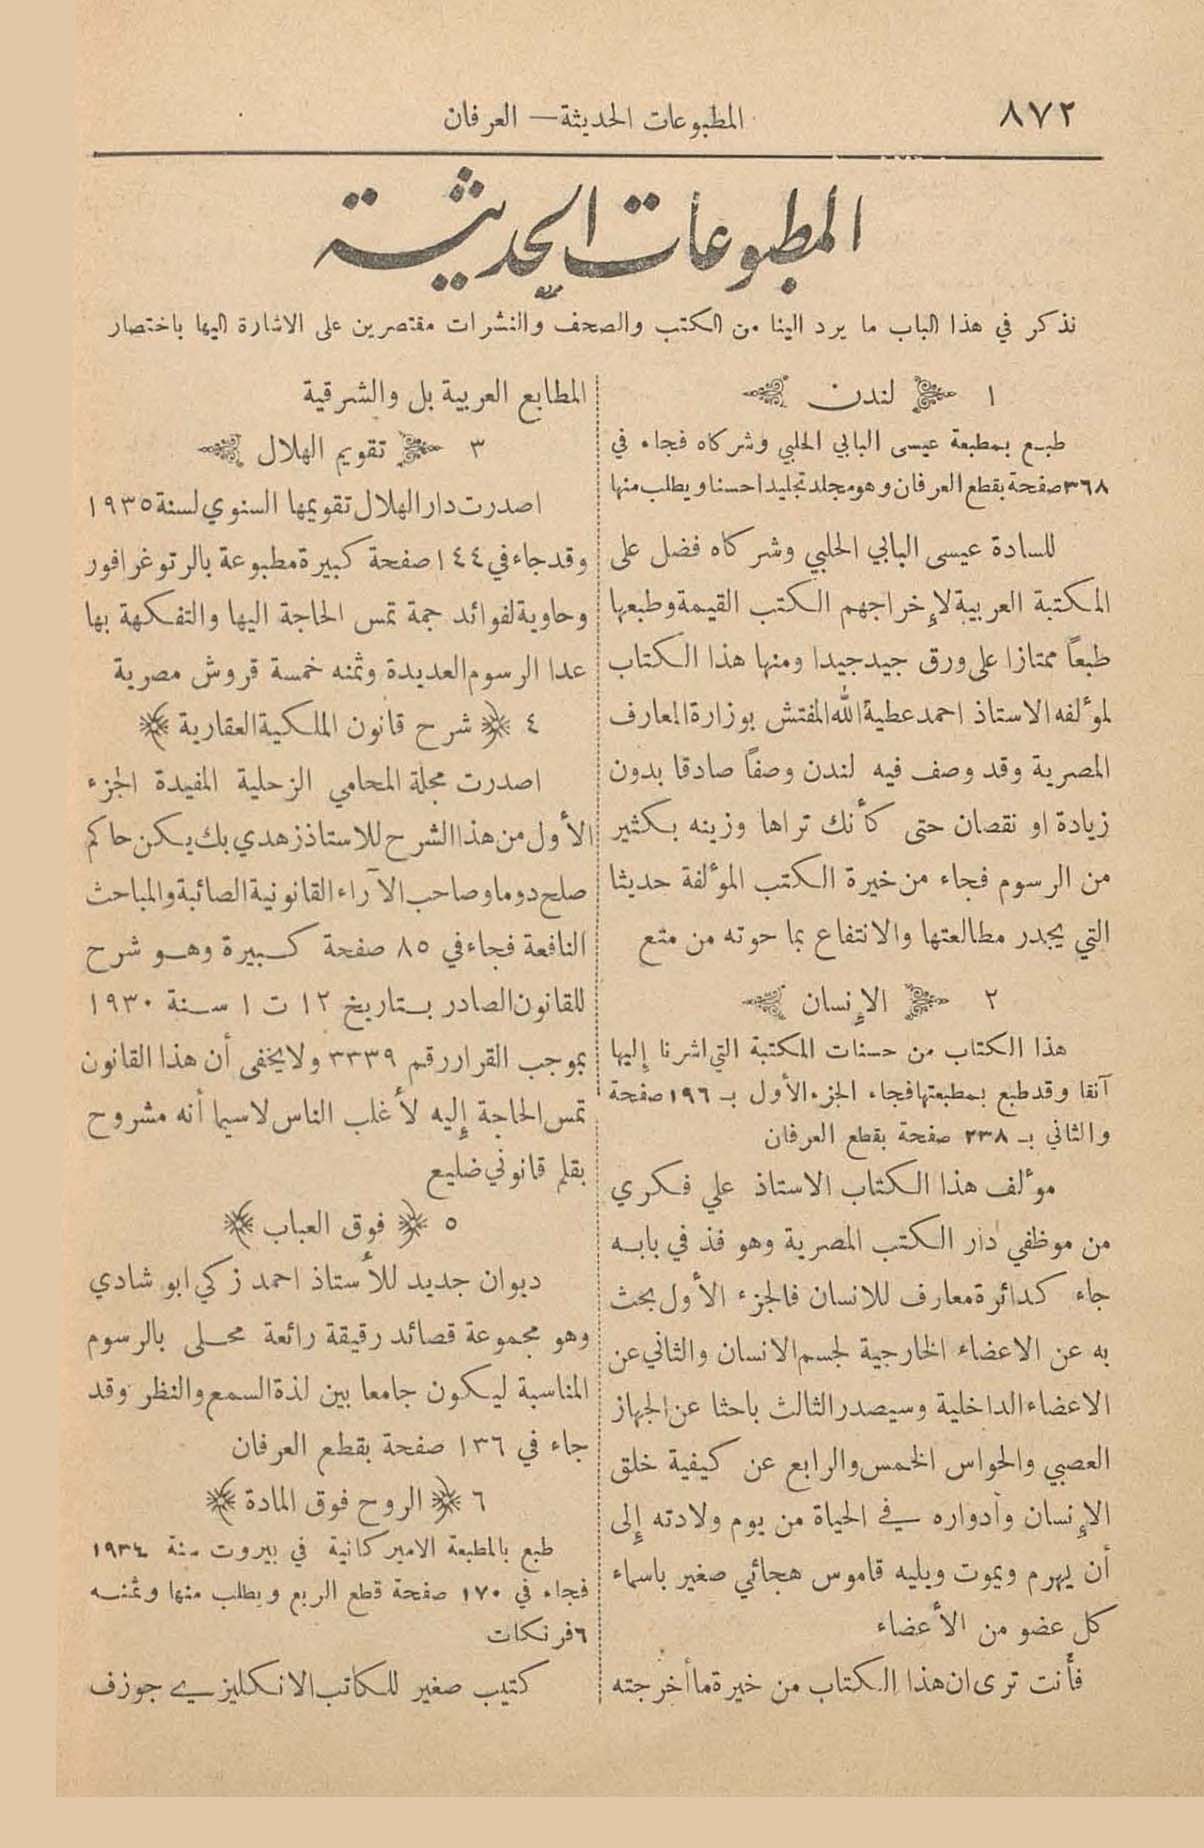 ٨٧٢
المطبوعات الحديثة — العرفان
المطبوعات الحديثة
نذكر في هذا الباب ما يرد الينا من الكتب والصحف والنشرات مقتصرين على الاشارة اليها باختصار
١ لندن
طبع بمطبعة عيسى البابي الحلبي وشركاه فجاء في
٣٦٨ صفحة بقطع العرفان وهو مجلد تجليدا حسنا ويطلب منها
للسادة عيسى البابي الحلبي وشركاه فضل على
المكتبة العربية لإخراجهم الكتب القيمة وطبعها
طبعاً ممتازا على ورق جيد جيدا ومنها هذا الكتاب
لمؤلفه الاستاذ احمد عطية الله المفتش بوزارة المعارف
المصرية وقد وصف فيه لندن وصفاً صادقا بدون
زيادة او نقصان حتى كأنك تراها وزينه بكثير
من الرسوم فجاء من خيرة الكتب المؤلفة حديثا
التي يجدر مطالعتها والانتفاع بما حوته من متع
٢ الإنسان
هذا الكتاب من حسنات المكتبة التي اشرنا إليها
آنفا وقد طبع بمطبعتها فجاء الجزء الأول بـ ١٩٦ صفحة
والثاني بـ ٢٣٨ صفحة بقطع العرفان
مؤلف هذا الكتاب الاستاذ علي فكري
من موظفي دار الكتب المصرية وهو فذ في بابه
جاء كدائرة معارف للانسان فالجزء الأول بحث
به عن الاعضاء الخارجية لجسم الانسان والثاني عن
الاعضاء الداخلية وسيصدر الثالث باحثا عن الجهاز
العصبي والحواس الخمس والرابع عن كيفية خلق
الإنسان وأدواره في الحياة من يوم ولادته إلى
أن يهرم ويموت ويليه قاموس هجائي صغير باسماء
كل عضو من الأعضاء
فأنت ترى ان هذا الكتاب من خيرة ما أخرجته
المطابع العربية بل والشرقية
٣ تقويم الهلال
اصدرت دار الهلال تقويمها السنوي لسنة ١٩٣٥
وقد جاء في ١٤٤ صفحة كبيرة مطبوعة بالرتوغرافور
وحاوية لفوائد جمة تمس الحاجة اليها والتفكهة بها
عدا الرسوم العديدة وثمنه خمسة قروش مصرية
٤ شرح قانون الملكية العقارية
اصدرت مجلة المحامي الزحلية المفيدة الجزء
الأول من هذا الشرح للاستاذ زهدي بك يكن حاكم
صلح دوما وصاحب الآراء القانونية الصائبة والمباحث
النافعة فجاء في ٨٥ صفحة كبيرة وهو شرح
للقانون الصادر بتاريخ ١٢ ت ١ سنة ١٩٣٠
بموجب القرار رقم ٣٣٣٩ ولا يخفى أن هذا القانون
تمس الحاجة إليه لأغلب الناس لاسيما أنه مشروح
بقلم قانوني ضليع
٥ فوق العباب
ديوان جديد للأستاذ احمد زكي ابو شادي
وهو مجموعة قصائد رقيقة رائعة محلى بالرسوم
المناسبة ليكون جامعا بين لذة السمع والنظر وقد
جاء في ١٣٦ صفحة بقطع العرفان
٦ الروح فوق المادة
طبع بالمطبعة الاميركانية في بيروت سنة ١٩٣٤
فجاء في ١٧٠ صفحة قطع الربع ويطلب منها وثمنه
٦ فرنكات
كتيب صغير للكاتب الانكليزي جوزف